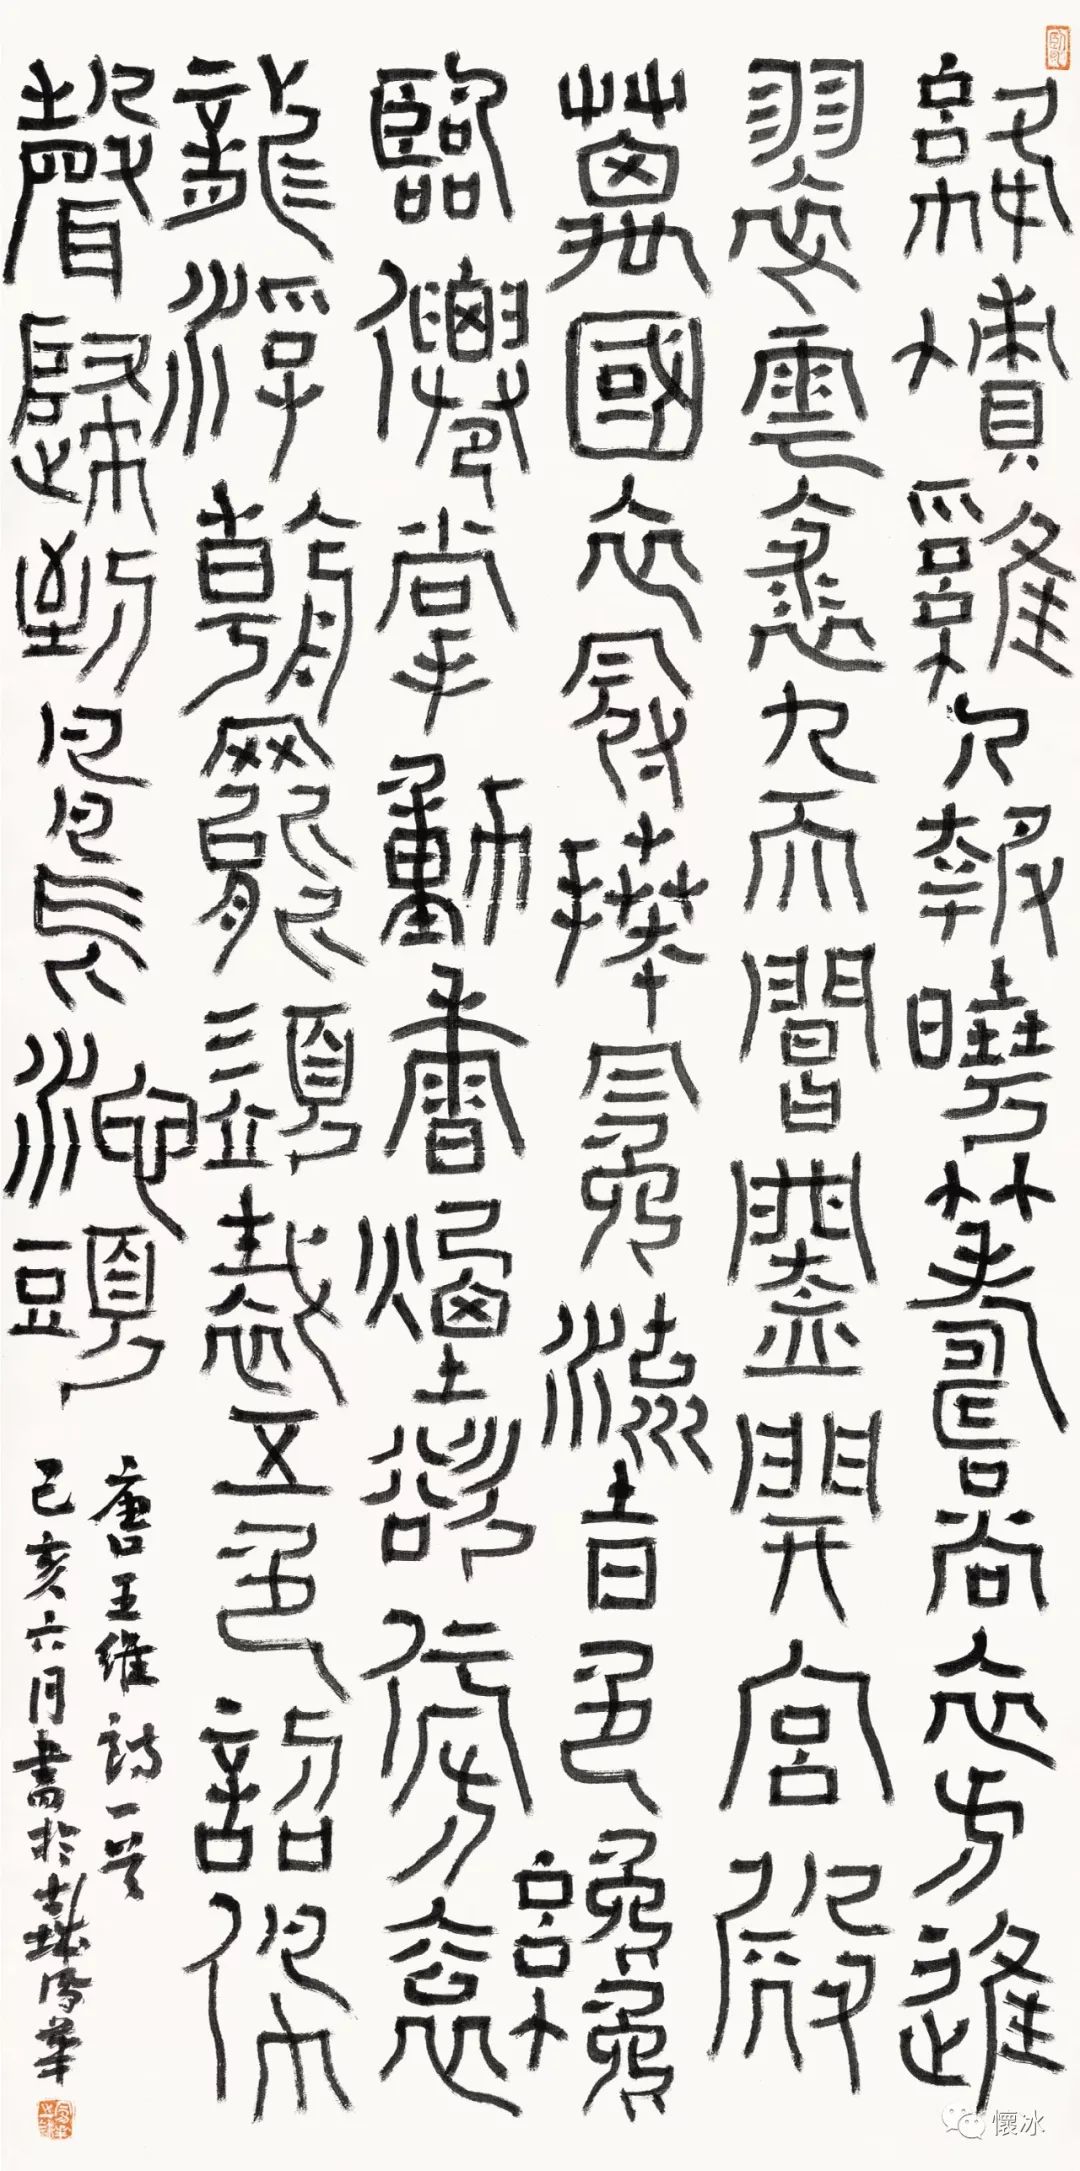 絳幘雞人報曉籌尚衣方進
翠雲裘九天閶闔開宮殿
萬國衣冠拜冕旒日色纔
臨僊掌動香煙欲傍袞
龍浮朝罷須裁五色詔佩
聲歸到鳳池頭
唐王維詩一首
己亥六月書於
懷冰